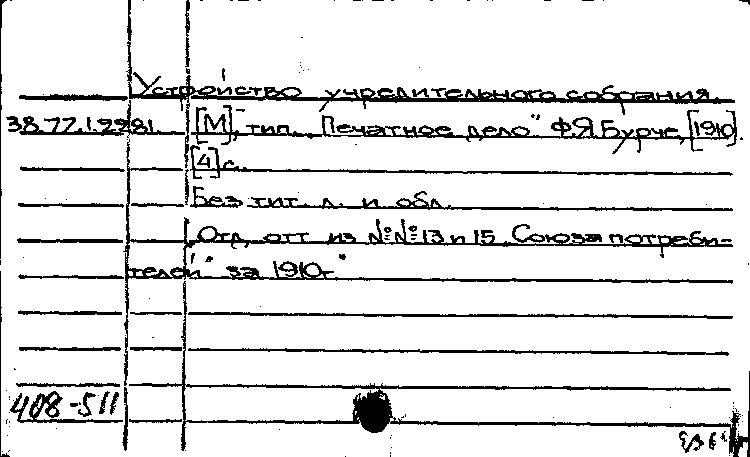 Устройство учредительного собрания.
38.77.1.2281. [М], тип. „Печатное дело" Ф.Я.Бурче, [1910].
[4] с.
Без тит. л. и обл.
„Отд. отт. из №№ 13 и 15 „Союза потреби-
телей" за 1910г."
408-511